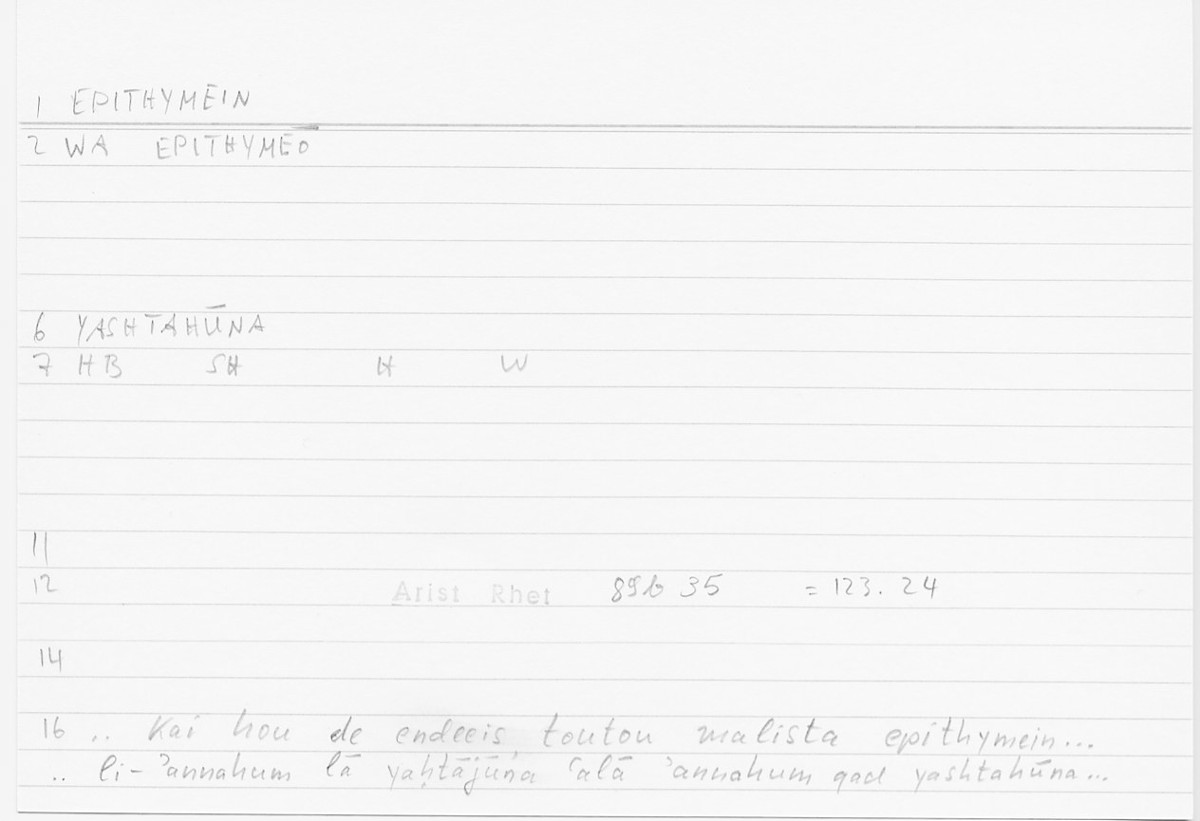 1 EPITHYMEIN
2 WA EPITHYMEŌ
6 YASHTAHŪNA
7 HB SH H W
11
12 Arist Rhet 89b 35 = 123.24
14
16 .. Kai hou de endeeis, toutou malista epithymein...
.. li-ʾannahum lā yaḥtājūna ʿalā ʾannahum qad yashtahūna...